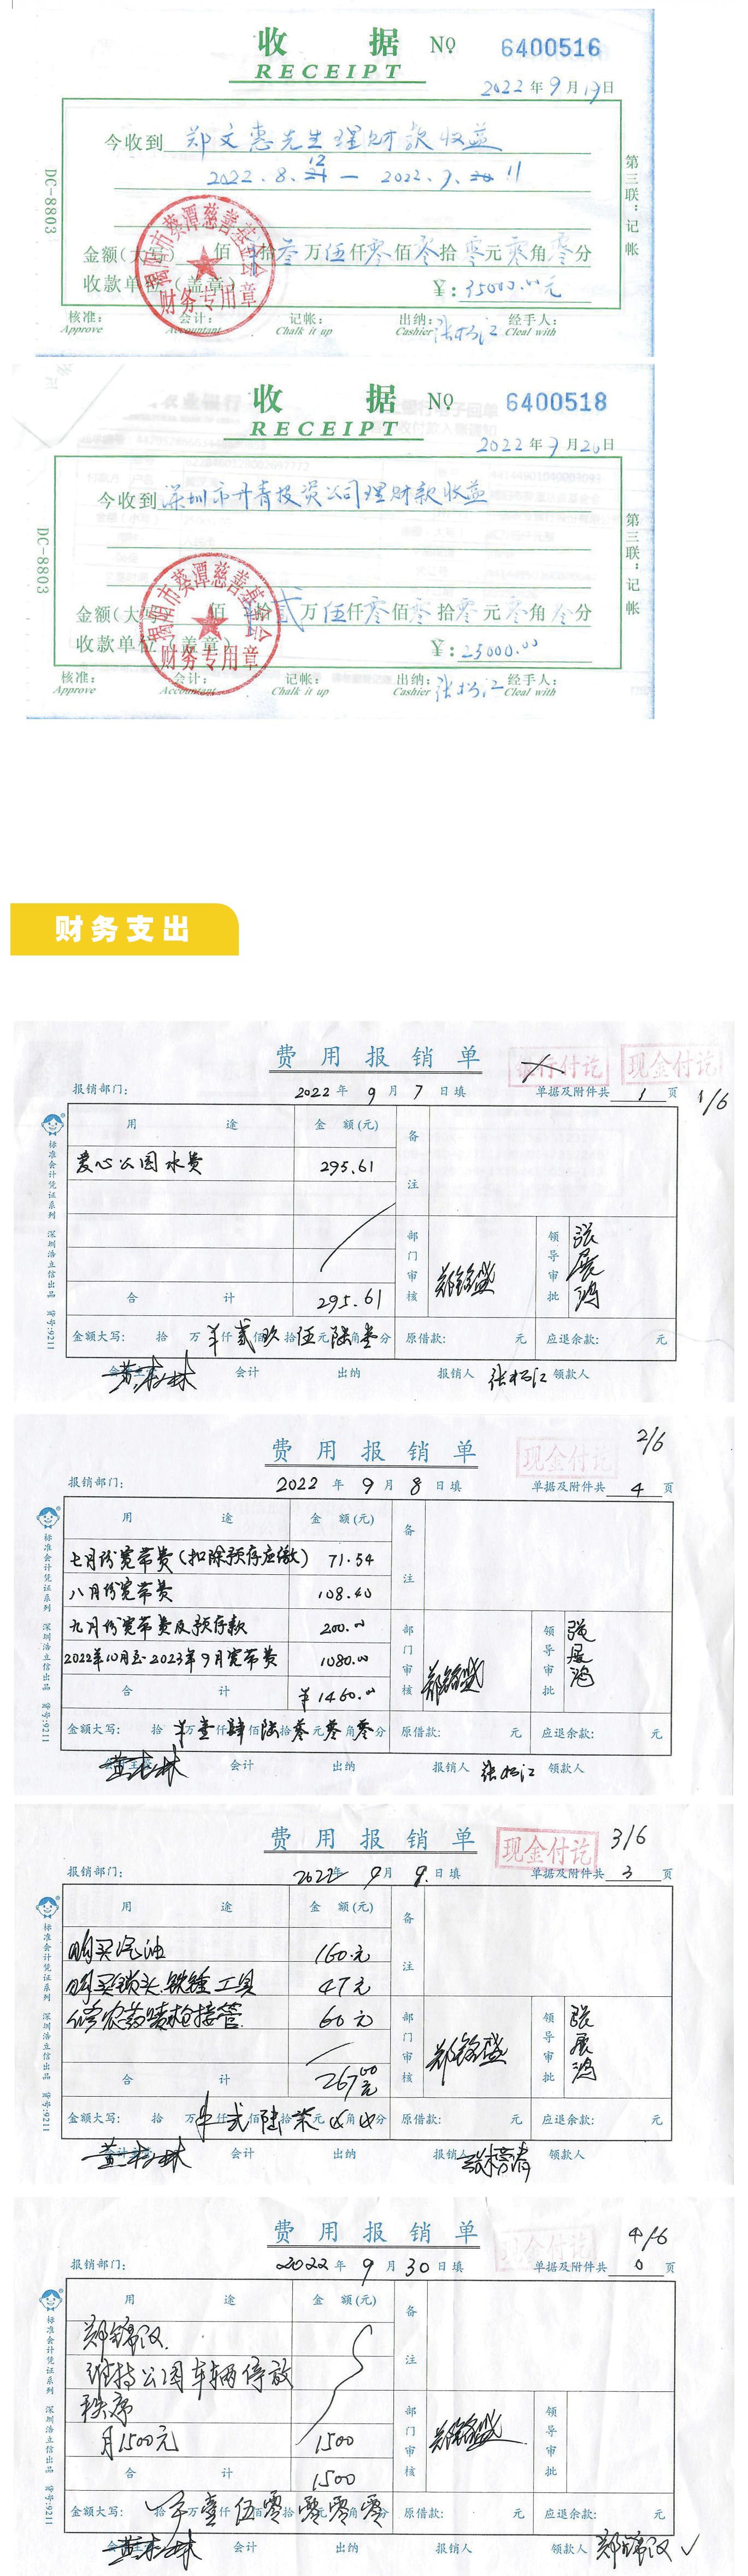 收 据 № 6400516
RECEIPT
2022年9月19日
今收到 郑文惠先生理财款收益
2022.8.12 — 2022.9.11
金额(大写) 佰 拾叁万伍仟零佰零拾零元零角零分
收款单位(盖章) ¥:35000.00元
揭阳市葵潭慈善基金会
财务专用章
核准: 会计: 记帐: 出纳: 经手人:
Approve Accountant Chalk it up Cashier Cleal with
DC-8803
第三联:记帐
收 据 № 6400518
RECEIPT
2022年9月20日
今收到 深圳市丹青投资公司理财款收益
金额(大写) 佰 拾贰万伍仟零佰零拾零元零角令分
收款单位(盖章) ¥:25000.00
揭阳市葵潭慈善基金会
财务专用章
核准: 会计: 记帐: 出纳: 经手人:
Approve Accountant Chalk it up Cashier Cleal with
DC-8803
第三联:记帐
财务支出
费用报销单 银行付讫 现金付讫
报销部门: 2022年9月7日填 单据及附件共 1 页 1/6
用途 金额(元) 备注
爱心公园水费 295.61
部门审核 领导审批 张展鸿
合计 295.61
金额大写: 拾 万 仟贰佰玖拾伍元陆角壹分 原借款: 元 应退余款: 元
会计 出纳 报销人 张松江 领款人
标准会计凭证系列 深圳浩立信出品 货号:9211
费用报销单 现金付讫 2/6
报销部门: 2022年9月8日填 单据及附件共 4 页
用途 金额(元) 备注
七月份宽带费(扣除预存应缴) 71.54
八月份宽带费 108.40
九月份宽带费及预存款 200.00
2022年10月至2023年9月宽带费 1080.00
部门审核 领导审批 张展鸿
合计 ¥1460.00
金额大写: 拾 万壹仟肆佰陆拾零元零角零分 原借款: 元 应退余款: 元
会计 出纳 报销人 张松江 领款人
标准会计凭证系列 深圳浩立信出品 货号:9211
费用报销单 现金付讫 3/6
报销部门: 2022年9月9日填 单据及附件共 3 页
用途 金额(元) 备注
购买汽油 160元
购买锁头.铁锤工具 47元
修农药喷枪接管 60元
部门审核 领导审批 张展鸿
合计 267.00元
金额大写: 拾 万 仟贰佰陆拾柒元 角 分 原借款: 元 应退余款: 元
会计 出纳 报销人 领款人
标准会计凭证系列 深圳浩立信出品 货号:9211
费用报销单 现金付讫 4/6
报销部门: 2022年9月30日填 单据及附件共 0 页
用途 金额(元) 备注
郑锦汉
维持公园车辆停放
秩序
月1500元 1500
部门审核 领导审批
合计 1500
金额大写: 拾 万壹仟伍佰零拾零元零角零分 原借款: 元 应退余款: 元
会计 出纳 报销人 领款人 郑锦汉
标准会计凭证系列 深圳浩立信出品 货号:9211